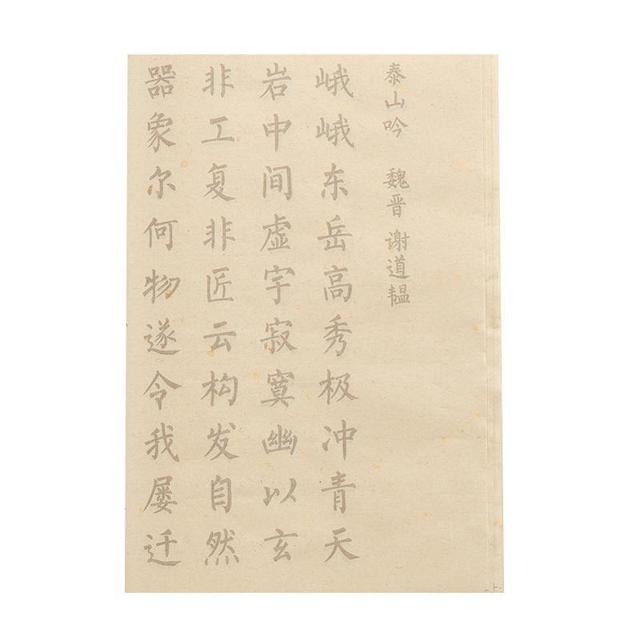 泰山吟 魏晋 谢道韫
峨峨东岳高秀极冲青天
岩中间虚宇寂寞幽以玄
非工复非匠云构发自然
器象尔何物遂令我屡迁